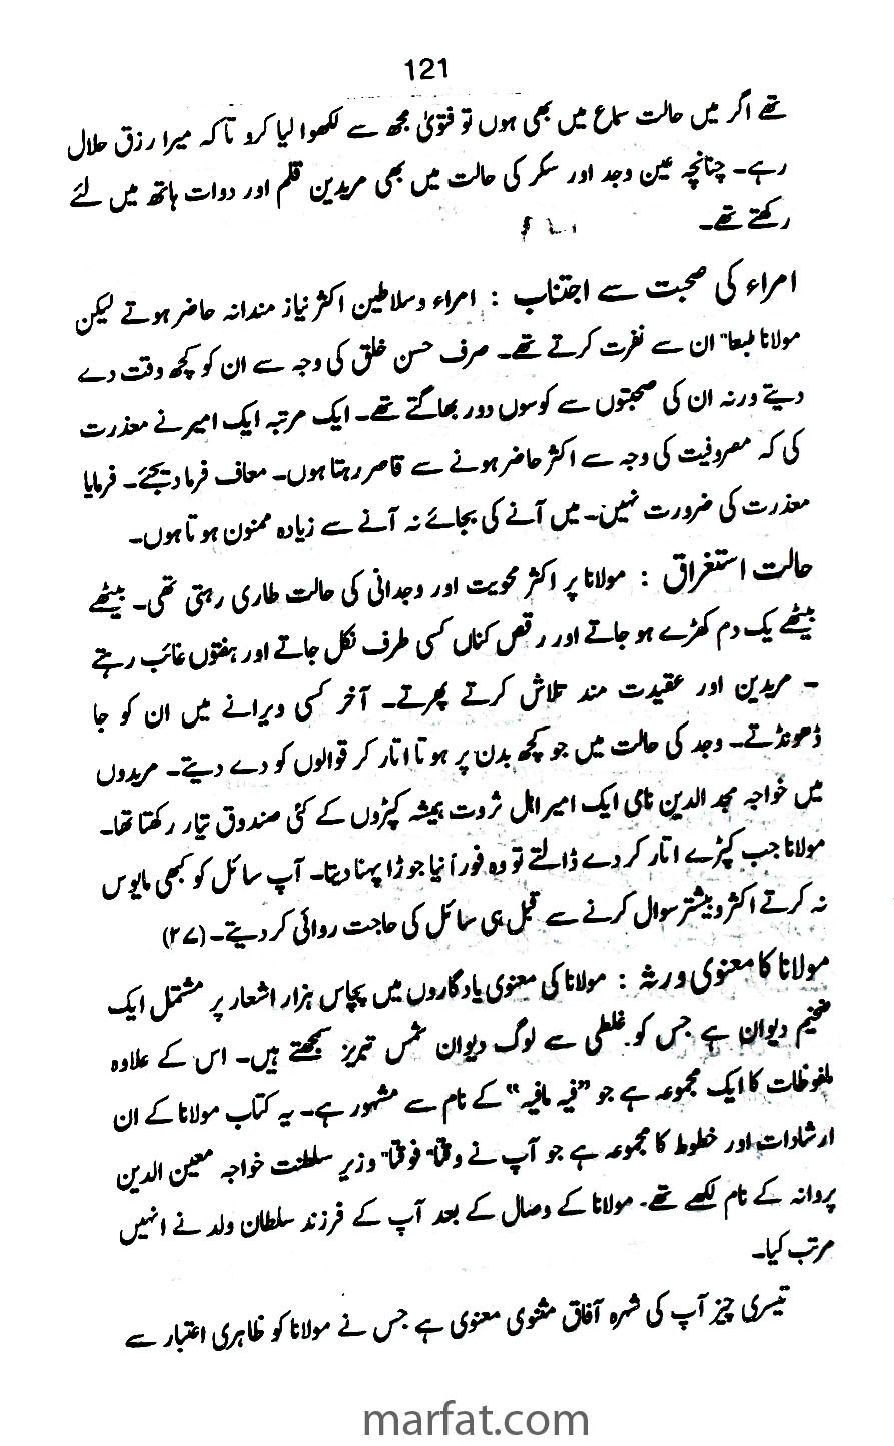 121
تھے اگر میں حالت سماع میں بھی ہوں تو فتویٰ مجھ سے لکھوا لیا کرو تاکہ میرا رزق حلال
رہے۔ چنانچہ عین وجد اور سکر کی حالت میں بھی مریدین قلم اور دوات ہاتھ میں لئے
رکھتے تھے۔
امراء کی صحبت سے اجتناب : امراء وسلاطین اکثر نیاز مندانہ حاضر ہوتے لیکن
مولانا طبعا" ان سے نفرت کرتے تھے۔ صرف حسن خلق کی وجہ سے ان کو کچھ وقت دے
دیتے ورنہ ان کی صحبتوں سے کوسوں دور بھاگتے تھے۔ ایک مرتبہ ایک امیر نے معذرت
کی کہ مصروفیت کی وجہ سے اکثر حاضر ہونے سے قاصر رہتا ہوں۔ معاف فرما دیجئے۔ فرمایا
معذرت کی ضرورت نہیں۔ میں آنے کی بجائے نہ آنے سے زیادہ ممنون ہوتا ہوں۔
حالت استغراق : مولانا پر اکثر محویت اور وجدانی کی حالت طاری رہتی تھی۔ بیٹھے
بیٹھے یک دم کھڑے ہو جاتے اور رقص کناں کسی طرف نکل جاتے اور ہفتوں غائب رہتے
۔ مریدین اور عقیدت مند تلاش کرتے پھرتے۔ آخر کسی ویرانے میں ان کو جا
ڈھونڈتے۔ وجد کی حالت میں جو کچھ بدن پر ہوتا اتار کر قوالوں کو دے دیتے۔ مریدوں
میں خواجہ مجد الدین نامی ایک امیر اہل ثروت ہمیشہ کپڑوں کے کئی صندوق تیار رکھتا تھا۔
مولانا جب کپڑے اتار کر دے ڈالتے تو وہ فوراً نیا جوڑا پہنا دیتا۔ آپ سائل کو کبھی مایوس
نہ کرتے اکثر و بیشتر سوال کرنے سے قبل ہی سائل کی حاجت روائی کر دیتے۔ (۲۷)
مولانا کا معنوی ورثہ : مولانا کی معنوی یادگاروں میں پچاس ہزار اشعار پر مشتمل ایک
ضخیم دیوان ہے جس کو غلطی سے لوگ دیوان شمس تبریز سمجھتے ہیں۔ اس کے علاوہ
ملفوظات کا ایک مجموعہ ہے جو "فیہ مافیہ" کے نام سے مشہور ہے۔ یہ کتاب مولانا کے ان
ارشادات اور خطوط کا مجموعہ ہے جو آپ نے وقتا" فوقتا" وزیر سلطنت خواجہ معین الدین
پروانہ کے نام لکھے تھے۔ مولانا کے وصال کے بعد آپ کے فرزند سلطان ولد نے انہیں
مرتب کیا۔
تیسری چیز آپ کی شہرہ آفاق مثنوی معنوی ہے جس نے مولانا کو ظاہری اعتبار سے
marfat.com